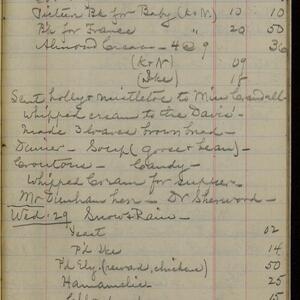 Picture Bk for Baby (K & N.) 10 10
Bk for France " 20 50
Almond Cream - 4 @ 9 36
(K & N) 09
(Ike) 18
Sent holly & mistletoe to Miss Crandall -
Whipped cream to the Davis -
made 3 loaves brown bread -
Dinner - Soup (goose & bean) -
Croutons - Candy -
Whipped Cream for supper -
Mr. Dunham here - Dr Sherwood -
Wed. 29 Snow & Rain -
Yeast 02
P'd Ike 14
P'd Ely (reward, chicken) 50
Hamamelis 25
15